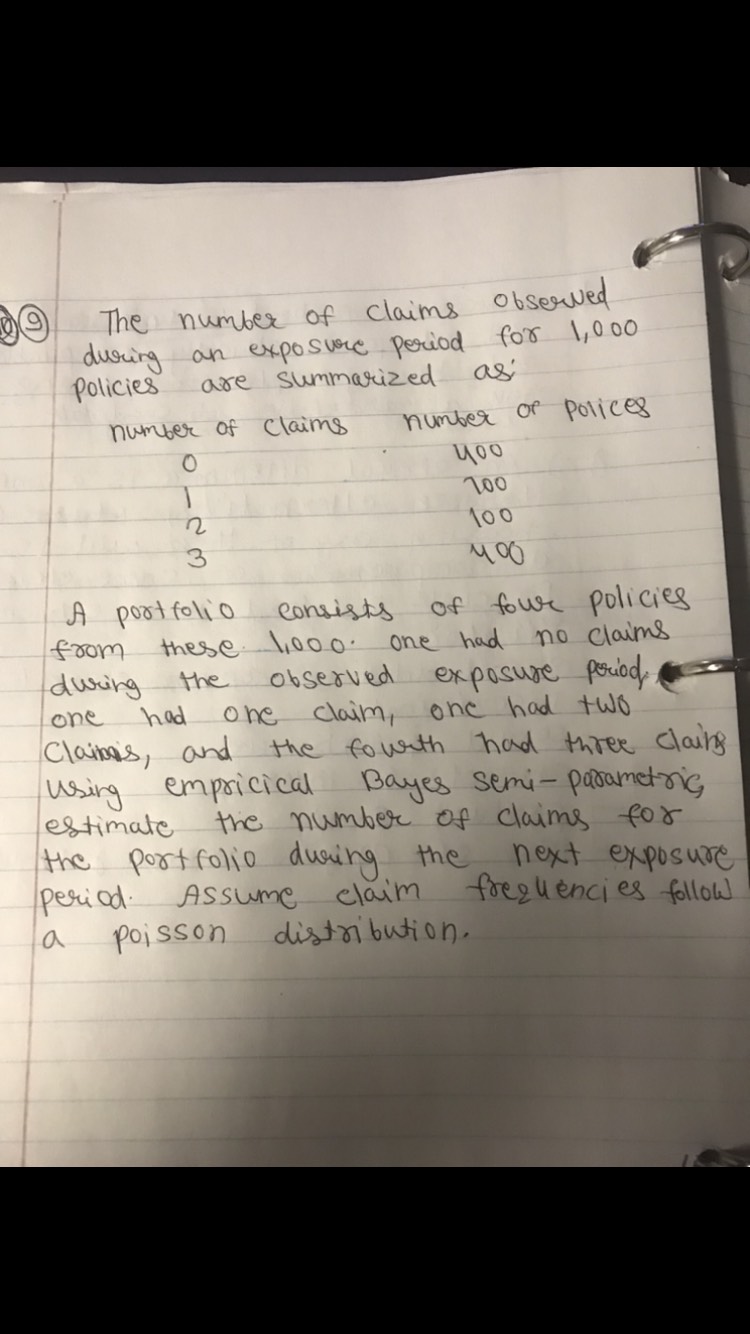 9 The number of claims observed
during an exposure period for 1,000
policies are summarized as:
number of claims number of polices
0 400
1 700
2 100
3 400
A portfolio consists of four policies
from these 1,000. one had no claims
during the observed exposure period,
one had one claim, one had two
claims, and the fourth had three claims
using empricical Bayes semi-parametric,
estimate the number of claims for
the portfolio during the next exposure
period. Assume claim frequencies follow
a poisson distribution.